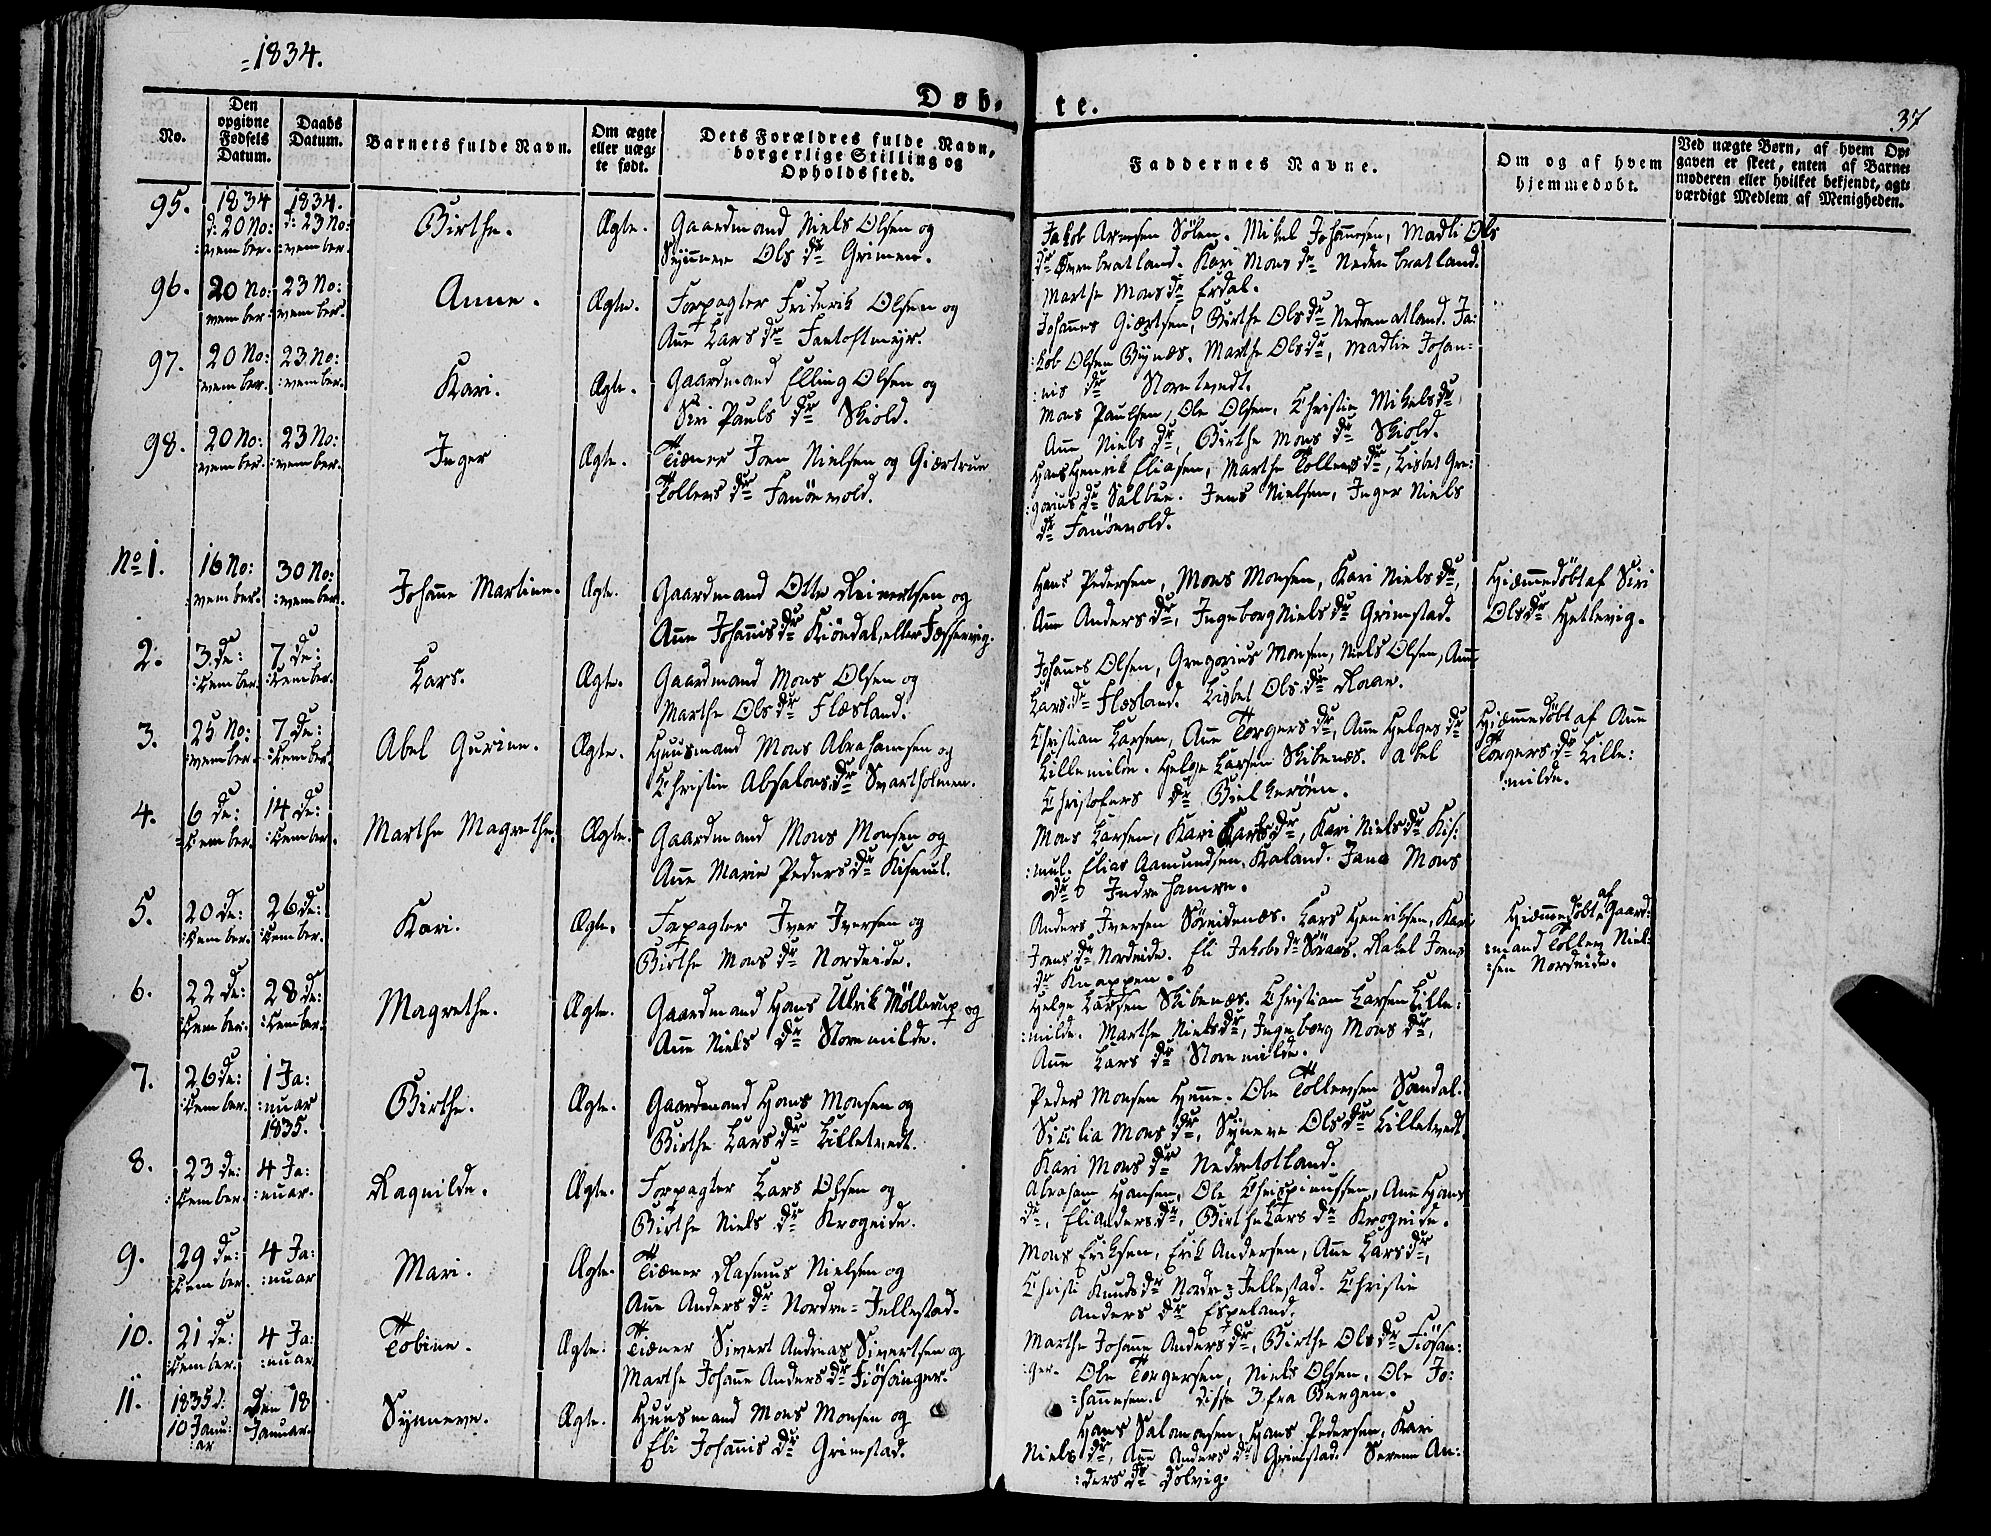 =1834.
Døb-
te.
37
No.
Den opgivne Fødsels Datum.
Daabs Datum.
Barnets fulde Navn.
Om ægte eller uæg-te født.
Dets Forældres fulde Navn, borgerlige Stilling og Opholdssted.
Faddernes Navne.
Om og af hvem hjemmedøbt.
Ved uægte Børn, af hvem Op-gaven er skeet, enten af Barne-moderen eller hvilket bekjendt, agt-værdigt Medlem af Menigheden.
95.
1834 d: 20 No:
:vember.
1834. d: 23 No:
:vember.
Birthe.
Ægte.
Gaardmand Niels Olsen og
Synneve Ols dr Grimen.
Jakob Arnesen Sølen. Mikel Johannesen, Madli Ols
dr Øvrebratland. Kari Mons dr Nedrebratland.
Marthe Mons dr Erdal.
96.
20 No:
vember.
23 No:
vember.
Anne.
Ægte.
Forpagter Friderik Olsen og
Anne Lars dr Fantoftmyr.
Johannes Giertsen, Birthe Ols dr Nedrenatland. Ja:
:kob Olsen Bynæs. Marthe Ols dr, Madlie Johan-
:nis dr Storetvedt.
97.
20 No:
:vember.
23 No:
:vember.
Kari.
Ægte.
Gaardmand Elling Olsen og
Siri Pauls dr Skiold.
Mons Paulsen, Ole Olsen, Christie Mikels dr,
Anne Niels dr, Birthe Mons dr Skiold.
98.
20 No:
vember.
23 No:
:vember.
Inger
Ægte.
Tiæner Joen Nielsen og Giærtrue
Tollevs dr Fanøevold.
Hans Henrik Eliasen, Marthe Tollevs dr, Lisbet Gre:
:gorius dr Salbue. Jens Nielsen, Inger Niels
dr Fanöevold.
No 1.
16 No:
vember.
30 No:
:vember.
Johanne Martine.
Ægte.
Gaardmand Otte Reinertsen og
Anne Johannis dr Kiöndal, eller Fæssevig.
Hans Pedersen, Mons Monsen, Kari Niels dr,
Anne Anders dr, Ingeborg Niels dr Grimstad.
Hiemmedöbt af Siri
Ols dr Hetlevig.
2.
3 de:
:cember.
7 de:
:cember.
Lars.
Ægte.
Gaardmand Mons Olsen og
Marthe Ols dr Flæsland.
Johannes Olsen, Gregorius Monsen, Niels Olsen, Anne
Lars dr Flæsland. Lisbet Ols dr Raae.
3.
25 No:
:vember.
7 de:
:cember.
Abel Gurine.
Ægte.
Huusmand Mons Abrahamsen og
Christie Absalons dr Svartholmen.
Christian Larsen, Anne Torgers dr, Anne Helges dr
Lillemilde. Helge Larsen Skibenæs. Abel
Christofers dr Bielkeröen.
Hiemmedöbt af Anne
Torgers dr Lille:
:milde.
4.
6 de:
=cember.
14 de:
:cember.
Marthe Magrethe.
Ægte.
Gaardmand Mons Monsen og
Anne Marie Peders dr Kismul.
Mons Larsen, Kari Lars dr, Kari Niels dr Kis:
:mul. Elias Aamundsen Kaland. Jane Mons
dr Indrehamre.
5.
20 de:
:cember.
26 de:
:cember.
Kari.
Ægte.
Forpagter Iver Iversen og
Birthe Mons dr Nordeide.
Anders Iversen Söreidenæs. Lars Henriksen, Kari
Joens dr Nordeide. Eli Jakobs dr Söraas. Rakel Joens
dr Knappen.
Hiemmedöbt af Gaard:
:mand Tollev Niel:
:sen Nordeide.
6.
22 de:
:cember.
28 de:
:cember.
Magrethe.
Ægte.
Gaardmand Hans Ulrik Möllerup og
Anne Niels dr Storemilde.
Helge Larsen Skibenæs. Christian Larsen Lille:
:milde. Marthe Niels dr, Ingeborg Mons dr,
Anne Lars dr Storemilde.
7.
26 de:
:cember.
1 Ja:
:nuar
1835.
Birthe.
Ægte.
Gaardmand Hans Monsen og
Birthe Lars dr Lilletvedt.
Peder Monsen Hunne. Ole Tollevsen Sandal.
Sicilia Mons dr, Syneve Ols dr Lilletvedt.
Kari Mons dr Nedretotland.
8.
23 de:
:cember.
4 Ja:
:nuar.
Ragnilde.
Ægte.
Forpagter Lars Olsen og
Birthe Niels dr Krogeide.
Abraham Hansen, Ole Chrispinussen, Anne Hans
dr, Eli Anders dr, Birthe Lars dr Krogeide.
9.
29 de:
:cember.
4 Ja:
:nuar
Mari.
Ægte.
Tiæner Rasmus Nielsen og
Anne Anders dr Nordre=Jellestad.
Mons Eriksen, Erik Andersen, Anne Lars dr,
Christi Knuds dr Nordre Jellestad. Christie
Anders dr Espeland.
10.
21 de:
:cember.
4 Ja:
:nuar
Tobine.
Ægte.
Tiæner Sivert Andreas Sivertsen og
Marthe Johanne Anders dr Fiösanger.
Marthe Johanne Anders dr, Birthe Ols dr Fiösan:
:ger. Ole Torgersen, Niels Olsen, Ole Jo:
=hannesen. disse 3 fra Bergen.
11.
1835 d:
10 Janu:
:ar
Den 18
Januar.
Synneve.
Ægte.
Huusmand Mons Monsen og
Eli Johannis dr Grimstad.
Hans Salomonsen, Hans Pedersen, Kari
Niels dr, Anne Anders dr Grimstad. Serene An:
:ders dr Dolvig.